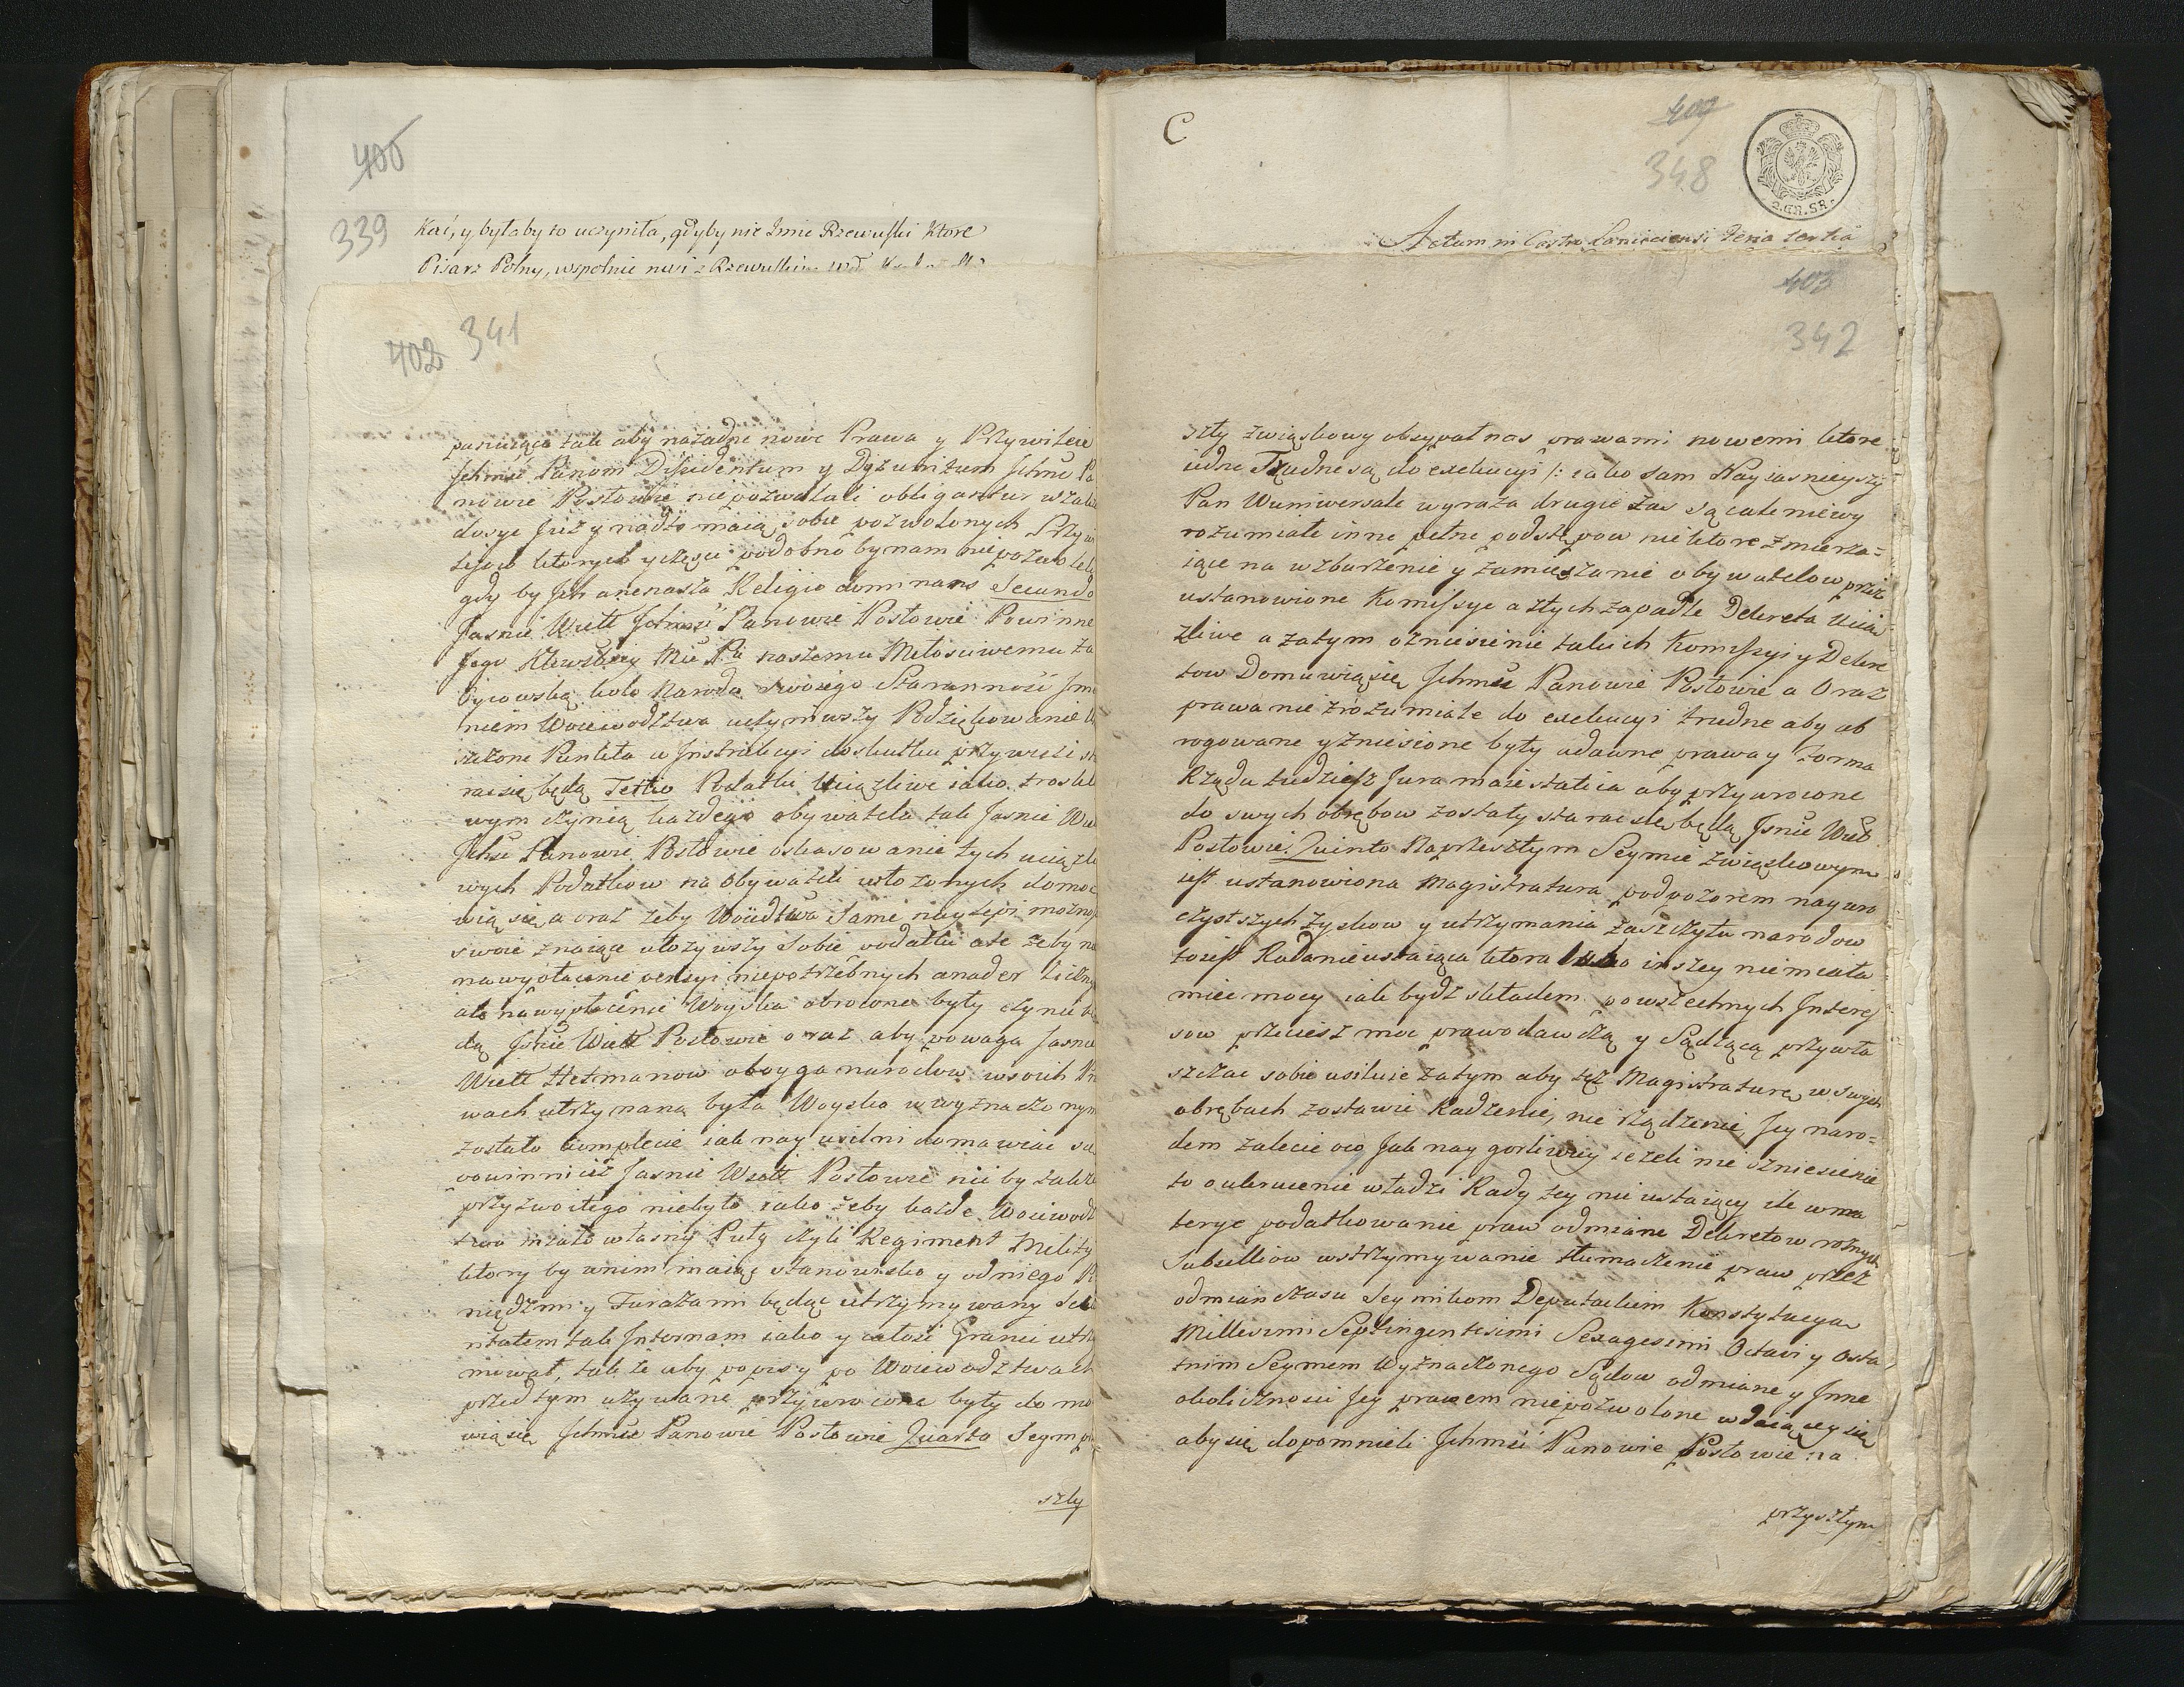 400
339
Kać, y byłaby to uczyniła, gdyby nie Imie Rzewuski Ktore
Pisarz Polny, wspolnie nosi z Rzewuskim
402 341
panuiąca tak aby nażadne nowe Prawa y Przywileie
Jchmść Panom Dissidentum y Dyzunitum Jchmć Pa
nowie Posłowie niepozwalali obligantur wszak
dosyc Już y nadto maią sobie pozwolonych Przywi
leiow ktorych yczęsci podobno by nam niepozwolili
gdy by Jch anienasza Religio dominans Secundo
Jasnie Wiell Jchmść Panowie Posłowie Powinne
Jego Krolewskiey Mći Pu naszemu Miłościwemu za
Oycowską koło Narodu swoiego Staranność Jmie
niem Woiewodztwa uczyniwszy Podziękowanie
rzeżone Punkta w Jnstrukcyi doskutku przywiesć sta
rac się będą Tertio Podatki Uciążliwe iako troskli
wym czynią każdego obywatela tak Jasnie Wiel
Jchść Panowie Posłowie oskasowanie tych uciążli
wych Podatkow na Obywateli włożonych domo
wią się, a oraz żeby Woiedtwa Same naylepi możnosc
swoie znaiące ułożywszy Sobie podatki ale żeby na
na wypłacenie pensyi niepotrzebnych anader liczny
ale na wypłacenie Woyska obrocone były czynić bę
dą Jsnie Wiell Posłowie oraz aby powaga Jasnie
Wiell Hetmanow oboyga narodow wsoich Pra
wach utrzymana była Woysko w wyznaczonym
zostało komplecie iak nay usilni domawiac się
powinni iż Jasnie Wiell Posłowie nie by takze
przyzwoitego niebyło iako żeby każde Woiewodz
two miało własny Pułg czyli Regiment Milicy
ktory by wnim maiąc stanowisko y odniego Pi
niędzmi y Furażami będąc utrzymywany Secu
ritatem tak Jnternam iako y całość Granic utrzy
mował, tak że aby popisy po Woiewodztwach
przedtym używane przywrocone były do mo
wią się Jchmść Panowie Posłowie Quarto Seym prze
szły
C
407
348
2.GR.SR.
Actum in Castro Lanciciensi Feria tertia
403
342
szły związkowy obsypał nas prawami nowemi ktore
iedne Trudne są do exekucyi /: iako sam Nayiasnieyszy
Pan Wuniwersale wyraża drugie zas są cale niewy
rozumiałe inne pełne podstępow niektore zmierza=
iące na wzburzenie y zamięszanie obywatelow przez
ustanowione Komissye a ztych zapadłe Dekreta Uciąż
żliwe a zatym ozniesienie takich Komissyi y Dekre
tow Domawią się Jchmść Panowie Posłowie a Oraz
prawa nie zrozumiałe do exekucyi trudne aby ab
rogowane yzniesione były adawne prawa y Forma
Rządu tudziesz Jura maiestatica aby przywrocone
do swych obrębow zostały starac się będą Jsnie Wiel
Posłowie. Quinto Naprzeszłym Seymie związkowym
iest ustanowiona Magistratura pod pozorem nayuro
czystszych zyskow y utrzymania zaszczytu narodow
to iest Rada nieustaiąca ktora lubo inszey niemiała
miec mocy iak bydz składem powszechnych Jnteres
sow przeciesz moc prawodawczą y Sądzącą przywła
szczac sobie usiłuie zatym aby tęż Magistraturę wswych
obrębach zostawic Radzenie, nie rządzenie, Jey naro=
dem zalecic oco Jak nay gorliwiey ieżeli nie zniesienie
to oukrucenie władzi Rady tey nieustaiącey ile wma
terye podatkowanie praw odmiane Dekretow rożnych
Subselliow wstrzymywanie tłumaczenie praw przez
odmian czasu Seymikom Deputackim Konstytucya
Millesimi Septingentesimi Sexagesimi Octavi y Osta
tnim Seymem Wyznaczonego Sądow odmiane y Jnne
okoliczności Jey prawem niepozwolone wdaiącey się
aby się dopomnieli Jchmść Panowie Posłowie na
przyszłym